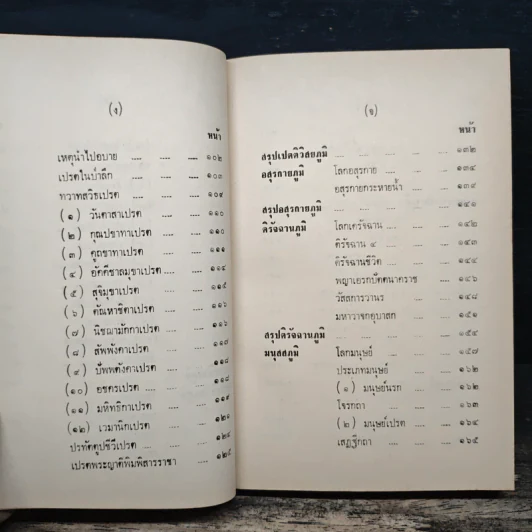 (ง)
หน้า
เหตุนำไปอบาย .... .... .... ๑๐๒
เปรตในบาลึก .... .... .... ๑๐๓
ทวาทสวิธเปรต .... .... ๑๐๙
(๑) วันตาสาเปรต .... ๑๑๐
(๒) กุณปขาทาเปรต .... ๑๑๐
(๓) คูถขาทาเปรต .... ๑๑๑
(๔) อัคคีชาลมุขาเปรต .... ๑๑๔
(๕) สุจิมุขาเปรต .... ๑๑๕
(๖) ตัณหาชิตาเปรต .... ๑๑๖
(๗) นิชฌามักกาเปรต .... ๑๑๖
(๘) สัพพังคาเปรต .... ๑๑๘
(๙) ปัพพตังคาเปรต .... ๑๑๘
(๑๐) อชครเปรต .... .... ๑๑๘
(๑๑) มหิทธิกาเปรต .... ๑๑๙
(๑๒) เวมานิกเปรต .... ๑๒๑
ปรทัตตุปชีวีเปรต .... .... ๑๒๔
เปรตพระญาติพิมพิสารราชา .... ๑๒๕
(จ)
หน้า
สรุปเปตติวิสยภูมิ .... .... .... ๑๓๒
อสุรกายภูมิ โลกอสุรกาย .... .... ๑๓๔
อสุรกายกระหายน้ำ .... ๑๓๙
สรุปอสุรกายภูมิ .... .... .... ๑๔๑
ดิรัจฉานภูมิ โลกเดรัจฉาน .... .... ๑๔๒
ดิรัจฉาน ๔ .... .... ๑๔๓
ดิรัจฉานชีวิต .... .... ๑๔๔
พญาเอรกปัตตนาคราช ๑๔๖
วัสสการวานร .... .... ๑๔๘
มหาวาจกอุบาสก .... ๑๕๑
สรุปดิรัจฉานภูมิ .... .... .... ๑๕๔
มนุสสภูมิ โลกมนุษย์ .... .... ๑๕๗
ประเภทมนุษย์ .... .... ๑๖๒
(๑) มนุษย์นรก .... ๑๖๒
โจรกถา .... .... ๑๖๓
(๒) มนุษย์เปรต .... ๑๖๔
เสฏฐีกถา .... .... ๑๖๕